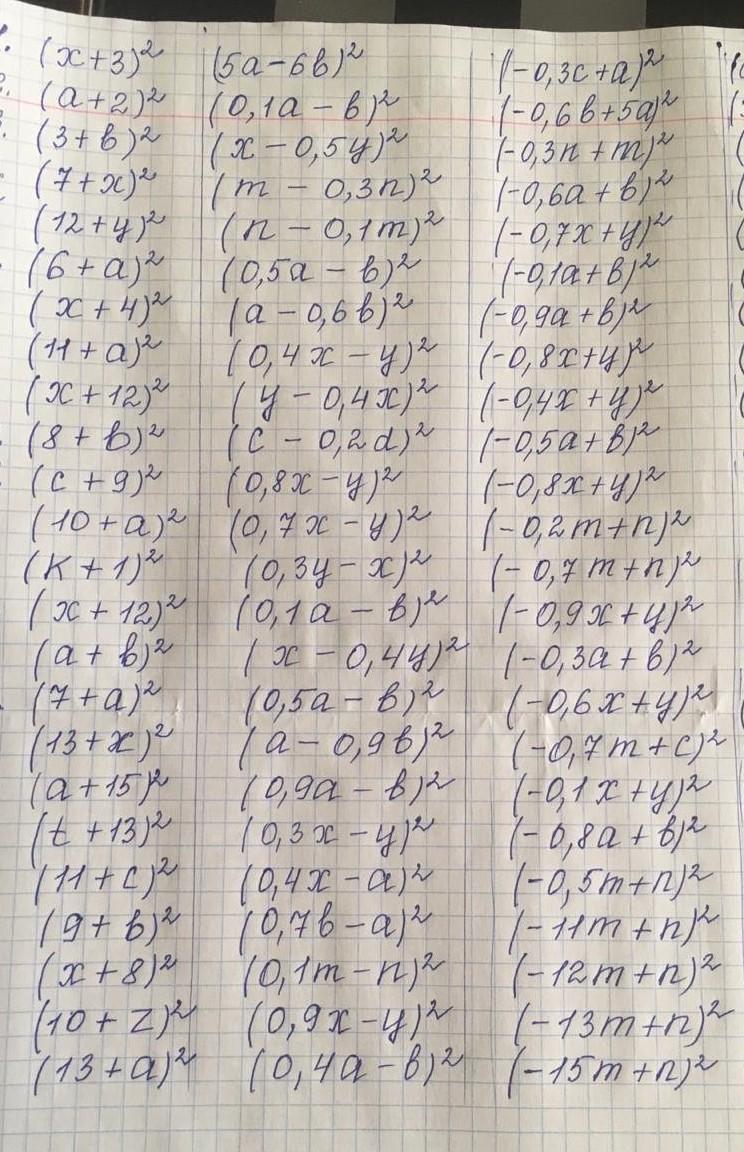 (x+3)² (5a-6b)² (-0,3c+a)²
(a+2)² (0,1a-b)² (-0,6b+5a)²
(3+b)² (x-0,5y)² (-0,3n+m)²
(7+x)² (m-0,3n)² (-0,6a+b)²
(12+y)² (n-0,1m)² (-0,7x+y)²
(6+a)² (0,5a-b)² (-0,1a+b)²
(x+4)² (a-0,6b)² (-0,9a+b)²
(11+a)² (0,4x-y)² (-0,8x+y)²
(x+12)² (y-0,4x)² (-0,4x+y)²
(8+b)² (c-0,2d)² (-0,5a+b)²
(c+9)² (0,8x-y)² (-0,8x+y)²
(10+a)² (0,7x-y)² (-0,2m+n)²
(k+1)² (0,3y-x)² (-0,7m+n)²
(x+12)² (0,1a-b)² (-0,9x+y)²
(a+b)² (x-0,4y)² (-0,3a+b)²
(7+a)² (0,5a-b)² (-0,6x+y)²
(13+x)² (a-0,9b)² (-0,7m+c)²
(a+15)² (0,9a-b)² (-0,1x+y)²
(t+13)² (0,3x-y)² (-0,8a+b)²
(11+c)² (0,4x-a)² (-0,5m+n)²
(9+b)² (0,7b-a)² (-11m+n)²
(x+8)² (0,1m-n)² (-12m+n)²
(10+z)² (0,9x-y)² (-13m+n)²
(13+a)² (0,4a-b)² (-15m+n)²